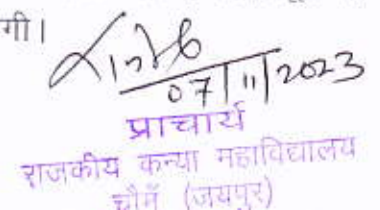 गी।
07/11/2023
प्राचार्य
राजकीय कन्या महाविद्यालय
चौमूँ (जयपुर)